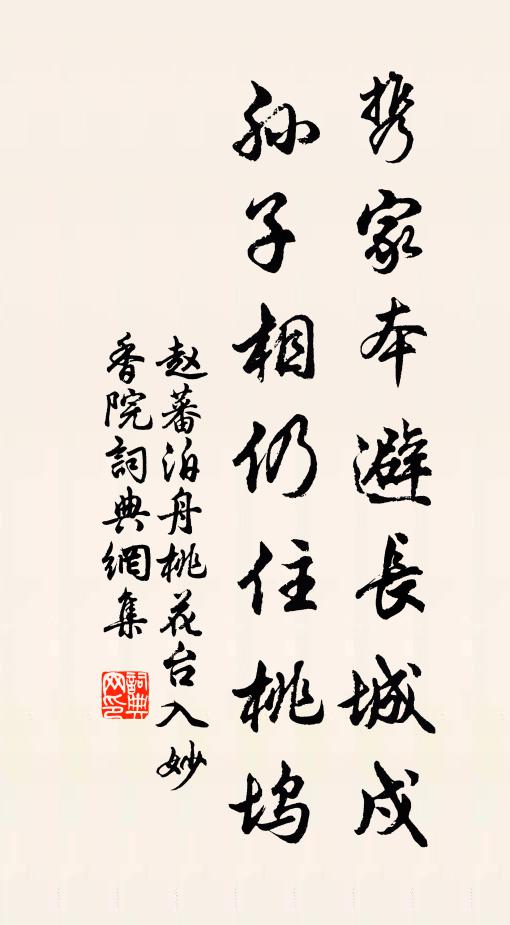 携家本避長城戍
孙子相仍住桃坞
赵蕃泊舟桃花台入妙
香院詞典網集
詞典网印